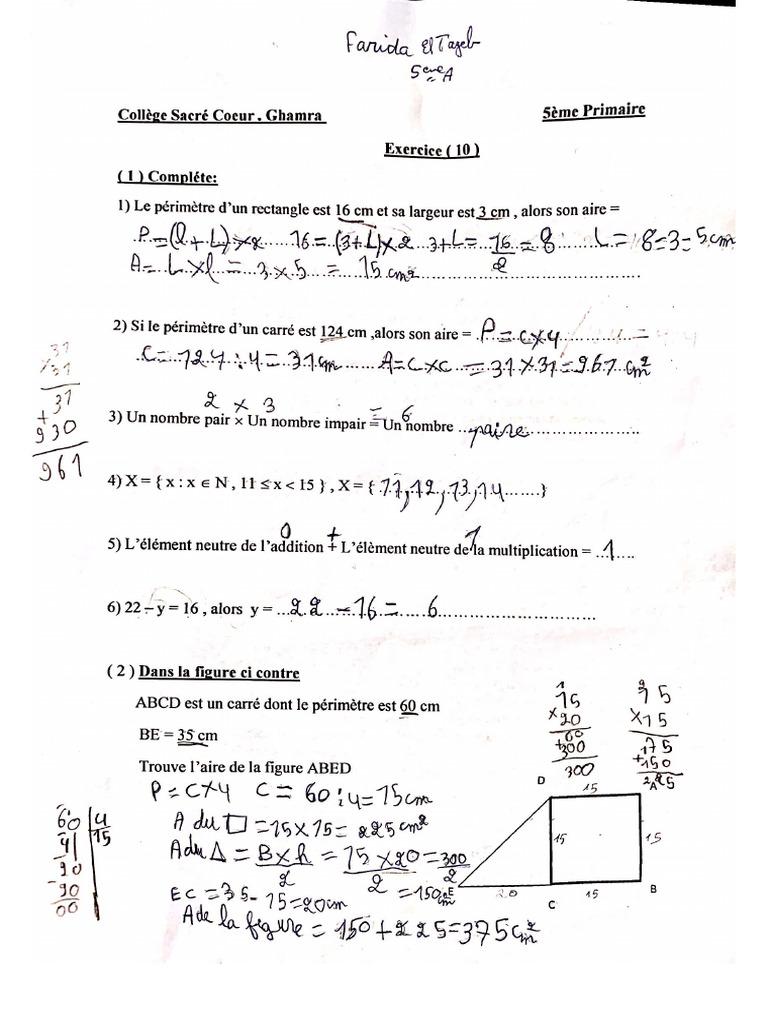 Farida ElTayeb
5ème A
Collège Sacré Coeur . Ghamra
5ème Primaire
Exercice ( 10 )
( 1 ) Compléte:
1) Le périmètre d'un rectangle est 16 cm et sa largeur est 3 cm , alors son aire =
P = (l + L) × 2 ..... 16 = (3+L) × 2 ... 3+L = 16/2 = 8 ...... L = 8 = 3 = 5 cm
A = L × l = 3 × 5 = 15 cm²
2) Si le périmètre d'un carré est 124 cm ,alors son aire = P = c × 4 =
C = 124 ÷ 4 = 31 cm A = C × C = 31 × 31 = 961 cm²
31
× 31
31
+
930
961
2 × 3 = 6
3) Un nombre pair × Un nombre impair = Un nombre ... paire
4) X = { x : x ∈ N , 11 ≤ x < 15 } , X = { 11, 12, 13, 14 ....... }
0 + 1
5) L'élément neutre de l'addition + L'élèment neutre de la multiplication = ... 1 ....
6) 22 – y = 16 , alors y = ... 22 - 16 = ... 6
( 2 ) Dans la figure ci contre
ABCD est un carré dont le périmètre est 60 cm
BE = 35 cm
Trouve l'aire de la figure ABED
P = C × 4 C = 60 ÷ 4 = 15 cm
A du □ = 15 × 15 = 225 cm²
A du Δ = B × h / 2 = 15 × 20 / 2 = 300 / 2
= 150 cm²
EC = 35 - 15 = 20 cm
A de la figure = 150 + 225 = 375 cm²
60 4
15
20
- 20
00
1
15
× 20
60
+300
300
2
15
× 15
175
+150
225
D
15
15
15
E
20
C
15
B